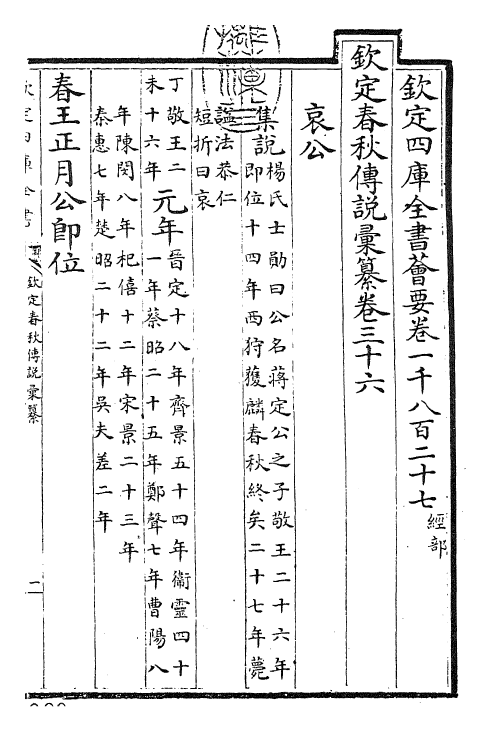 欽定四庫全書薈要卷一千八百二十七
經部
欽定春秋傳說彙纂卷三十六
哀公
集說楊氏士勛曰公名蔣定公之子敬王二十六年
即位十四年西狩獲麟春秋終矣二十七年薨
諡法恭仁
短折曰哀
丁敬王二
未十六年
元年晉定十八年齊景五十四年衞靈四十
一年蔡昭二十五年鄭聲七年曹陽八
年陳閔八年杞僖十二年宋景二十三年
秦惠七年楚昭二十二年吳夫差二年
春王正月公卽位
欽定四庫全書
欽定春秋傳說彙纂